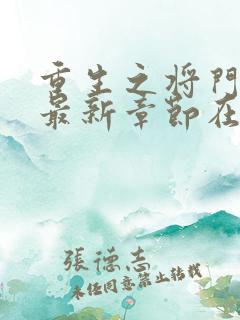 重生之将門
最新章節在
張德志
未经同意禁止转载